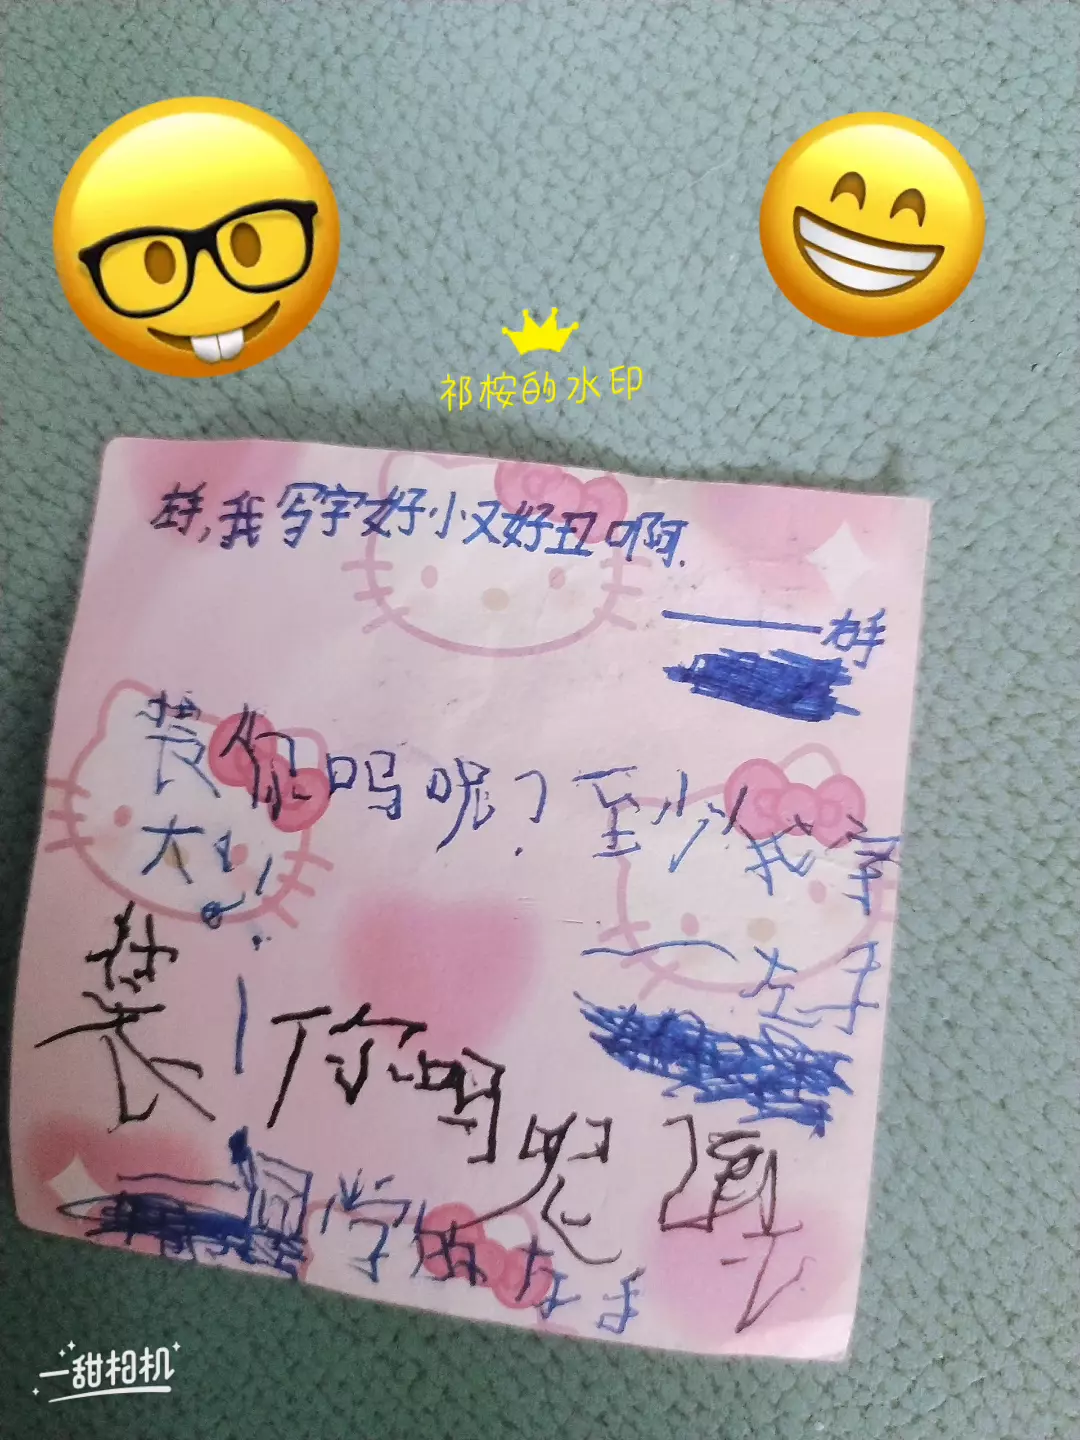 祁桉的水印
左手,我写字好小又好丑啊.
——右手
装你吗呢?至少我字
大!!
—左手
装你吗呢
—同学的左手
一甜相机